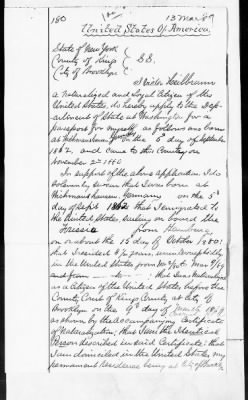 180
13 Mar 89
United States Of America.
State of New York
County of Kings } S.S.
City of Brooklyn
I Heilbrunn
a Naturalized and Loyal Citizen of the
United States, do hereby apply to the Dep-
artment of State at Washington for a
passport for myself as follows and born
at Germany on the 5 day of September
1862, and came to this Country on
November 2nd 1880
In support of the above application I do
Solemnly Swear that I was born at
Germany on the 5th
day of Sept 1862 that I emigrated to
the United States, sailing on board the
from Hamburg
on or about the 15 day of October 1880:
that I resided 8½ years, uninterruptedly
in the United States from to Mar 9/89
and from to that I was Naturalized
as a Citizen of the United States, before the
County Court of Kings County at City of
Brooklyn on the 9th day of March 1889
as shown by the accompanying Certificate
of Naturalization; that I am the Identical
Person described in said Certificate; that I
am domiciled in the United States, my
permanent Residence being at City of Brooklyn